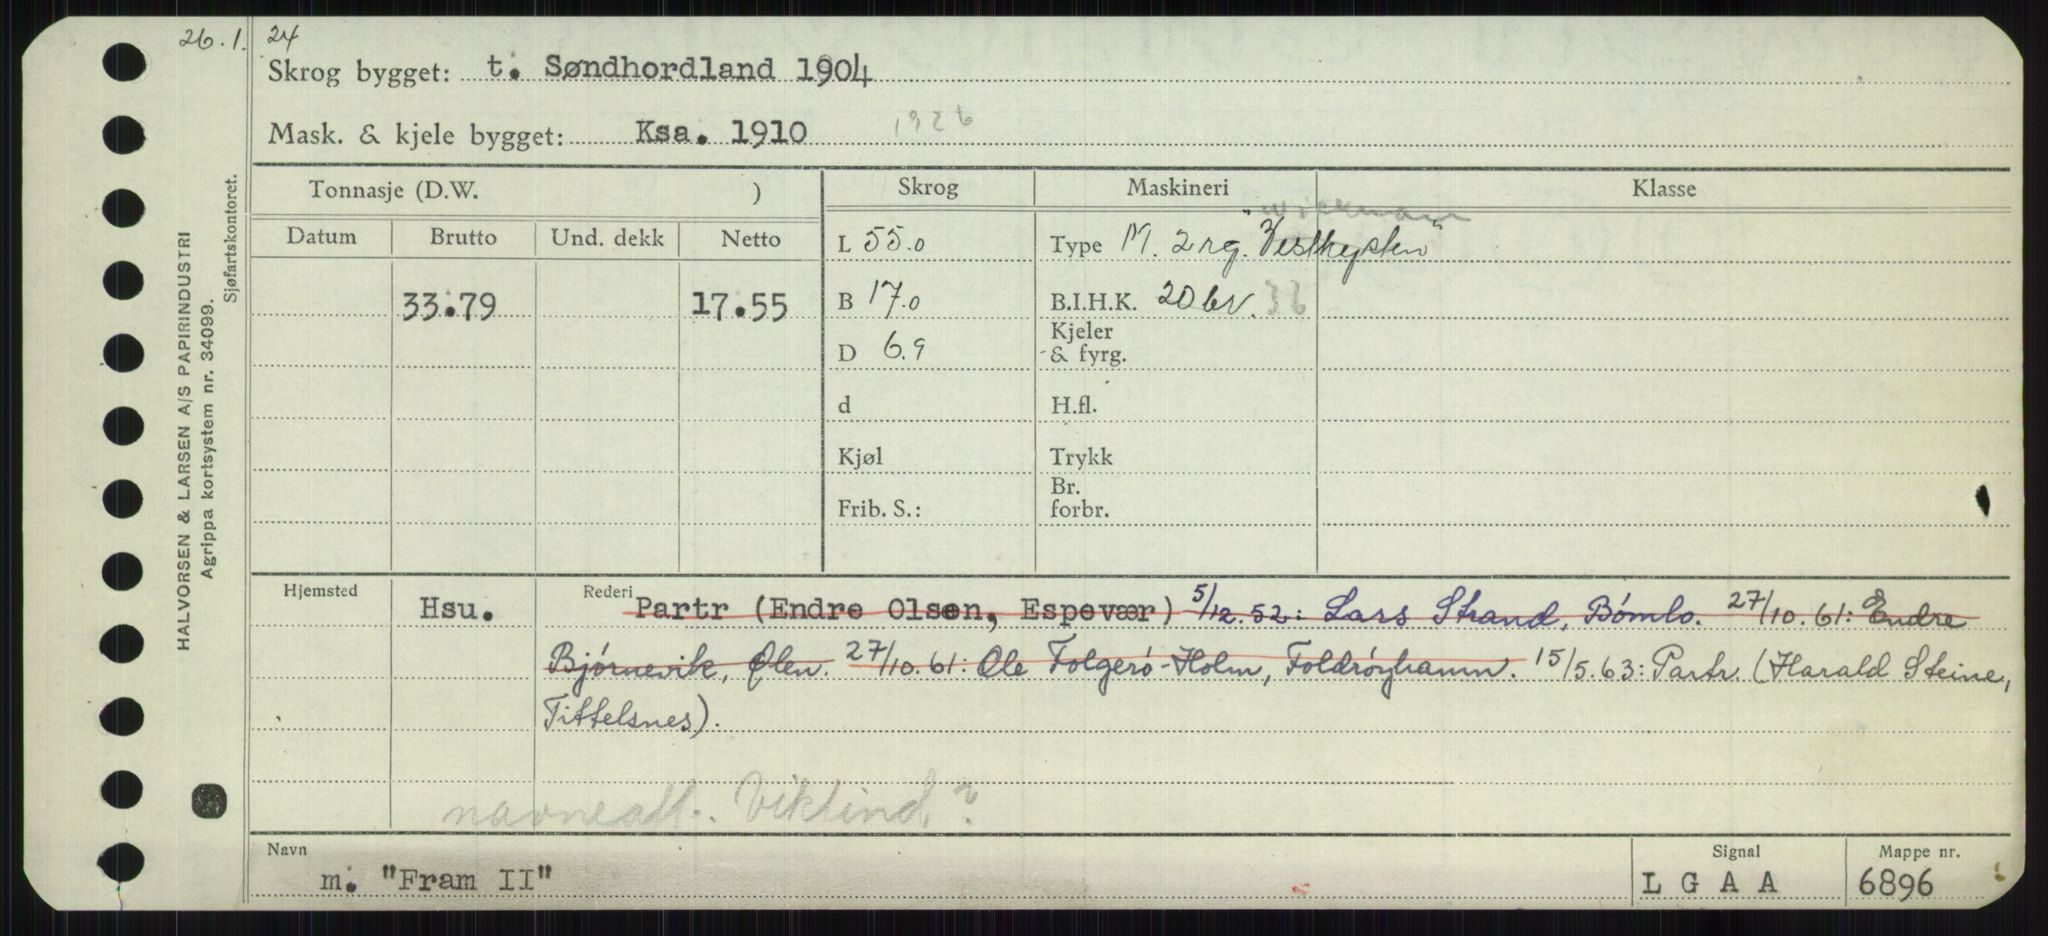 26.1.24
Skrog bygget: t. Søndhordland 1904
Mask. & kjele bygget: Ksa. 1910 1926
Tonnasje (D.W. ) Skrog Maskineri Klasse
"Wickmann
Datum Brutto Und. dekk Netto L 55.0 Type M. 2 rg. "Vestkysten"
33.79 17.55 B 17.0 B.I.H.K. 20 br. 36
Kjeler
D 6.9 & fyrg.
d H.fl.
Kjøl Trykk
Br.
Frib. S.: forbr.
Hjemsted Hsu. Rederi Partr (Endre Olsen, Espevær) 5/12.52: Lars Strand, Bømlo. 27/10.61: Endre
Bjørnevik, Ølen. 27/10.61: Ole Folgerø-Holm, Foldrøyhamn. 15/5.63: Partr. (Harald Steine,
Tittelsnes).
navneatt. Viklind?
Navn Signal Mappe nr.
m. "Fram II" L G A A 6896
HALVORSEN & LARSEN A/S PAPIRINDUSTRI
Agrippa kortsystem nr. 34099.
Sjøfartskontoret.